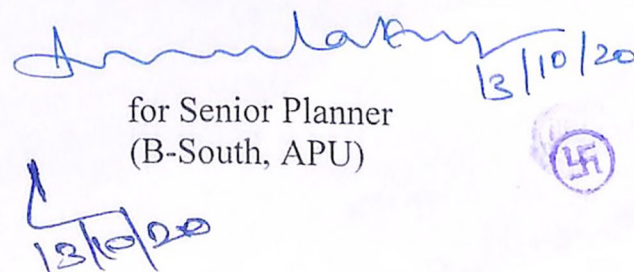 13/10/20
for Senior Planner
(B-South, APU)
13/10/20